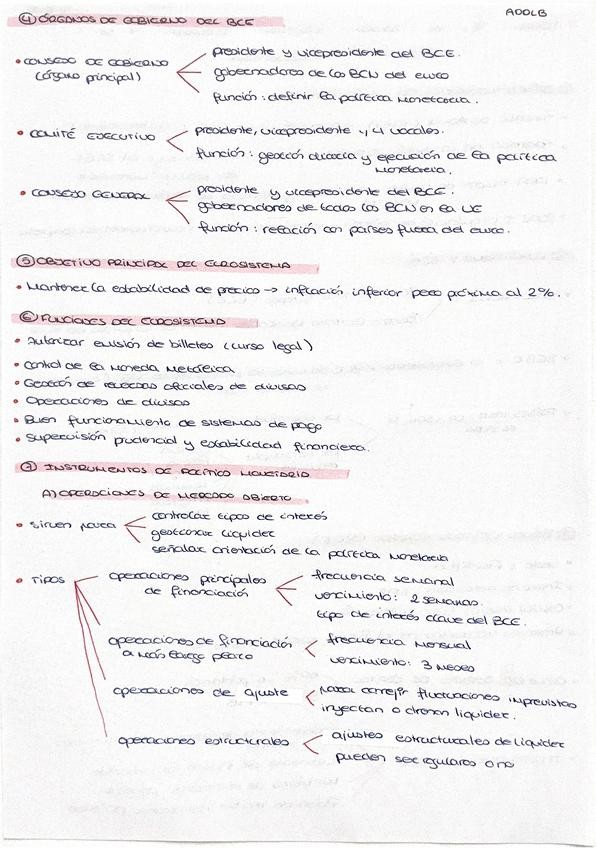 ADDLB
④ ÓRGANOS DE GOBIERNO DEL BCE
• CONSEJO DE GOBIERNO
(órgano principal)
presidente y vicepresidente del BCE.
gobernadores de los BCN del euro
función: definir la política monetaria.
• COMITÉ EJECUTIVO
presidente, vicepresidente y 4 vocales.
función: gestión diaria y ejecución de la política
monetaria.
• CONSEJO GENERAL
presidente y vicepresidente del BCE.
gobernadores de todos los BCN en la UE
función: relación con países fuera del euro.
⑤ OBJETIVO PRINCIPAL DEL EUROSISTEMA
• Mantener la estabilidad de precios → inflación inferior pero próxima al 2%.
⑥ FUNCIONES DEL EUROSISTEMA
• Autorizar emisión de billetes (curso legal)
• Control de la moneda metálica
• Gestión de reservas oficiales de divisas
• Operaciones de divisas
• Buen funcionamiento de sistemas de pago
• Supervisión prudencial y estabilidad financiera.
⑦ INSTRUMENTOS DE POLÍTICA MONETARIA
A) OPERACIONES DE MERCADO ABIERTO
• sirven para
controlar tipos de interés
gestionar liquidez
señalar orientación de la política monetaria
• TIPOS
operaciones principales
de financiación
frecuencia semanal
vencimiento: 2 semanas.
tipo de interés clave del BCE.
operaciones de financiación
a más largo plazo
frecuencia mensual
vencimiento: 3 meses
operaciones de ajuste
para corregir fluctuaciones imprevistas
inyectan o drenan liquidez.
operaciones estructurales
ajustes estructurales de liquidez
pueden ser regulares o no